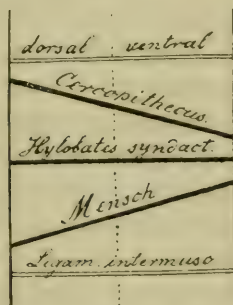 dorsal ventral
Cercopithecus.
Hylobates syndact.
Mensch
Ligam. intermusc